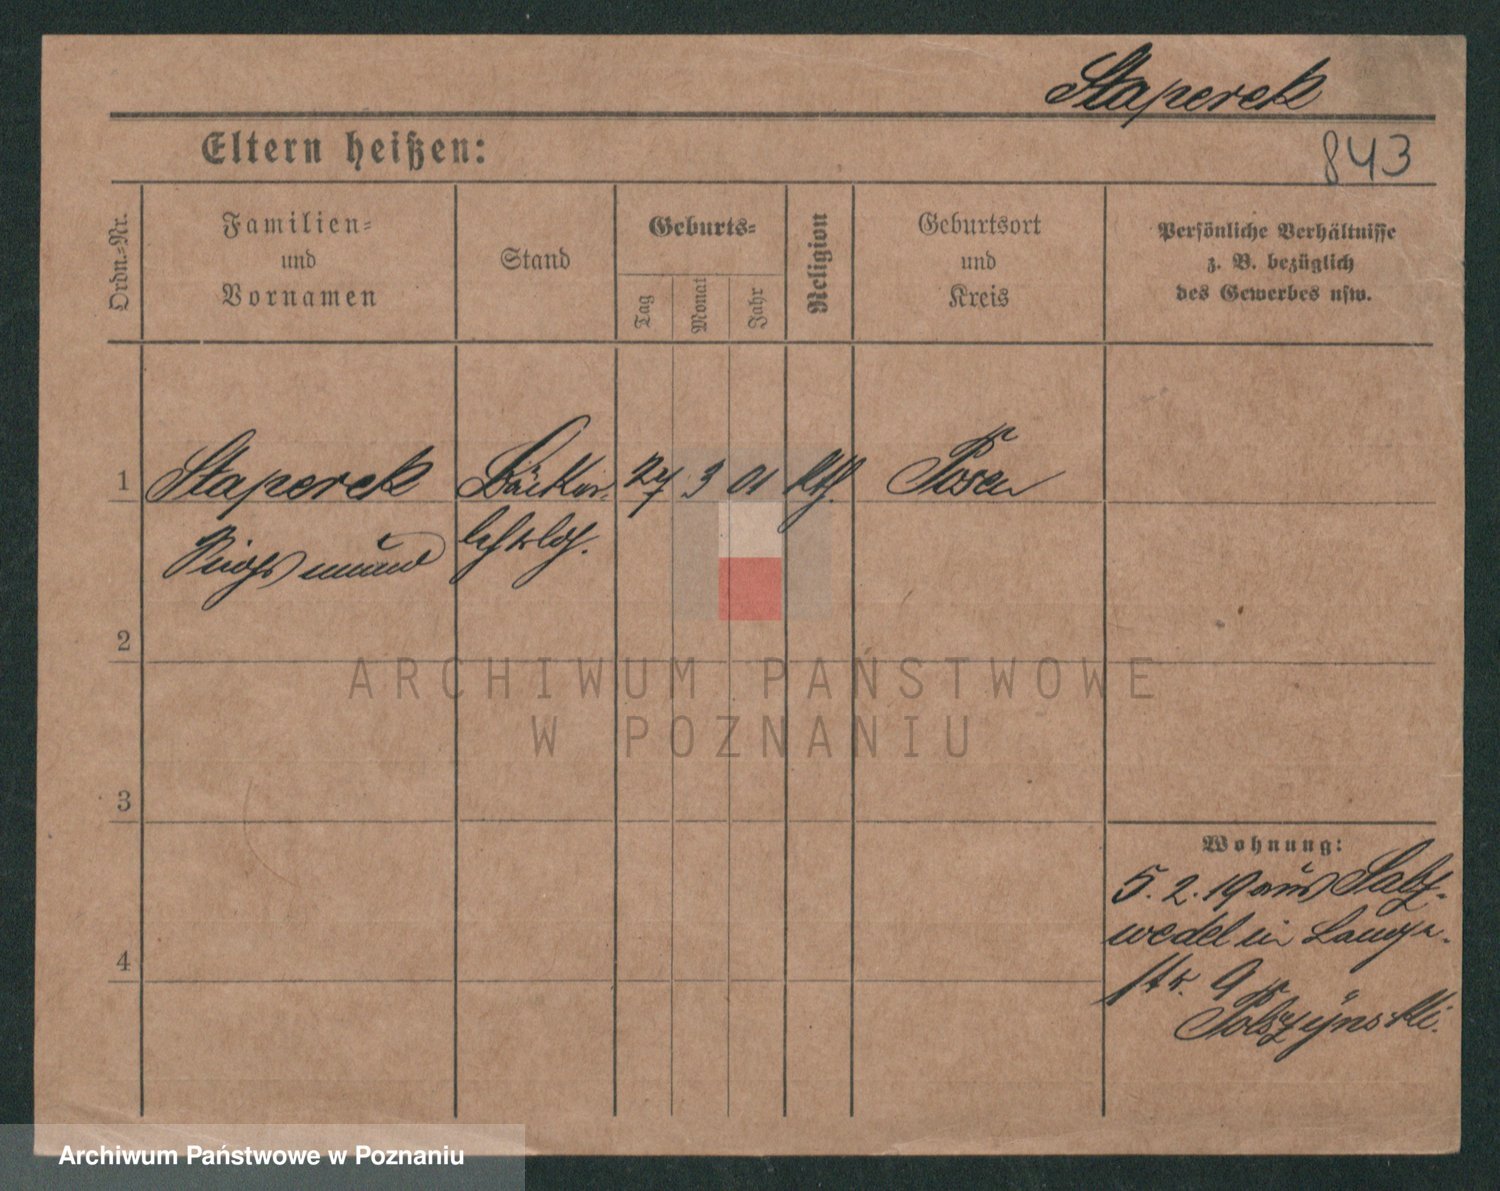 Staperek
Eltern heißen:
843
Ordn.-Nr.
Familien-
und
Vornamen
Stand
Geburts-
Tag
Monat
Jahr
Religion
Geburtsort
und
Kreis
Persönliche Verhältnisse
z. B. bezüglich
des Gewerbes usw.
1 Staperek Bäcker 27 3 01 kth. Posen
lehrlg.
2
3
4
Wohnung:
5. 2. 19 aus Salz-
wedel in Lange
str. 9
ARCHIWUM PAŃSTWOWE
W POZNANIU
Archiwum Państwowe w Poznaniu